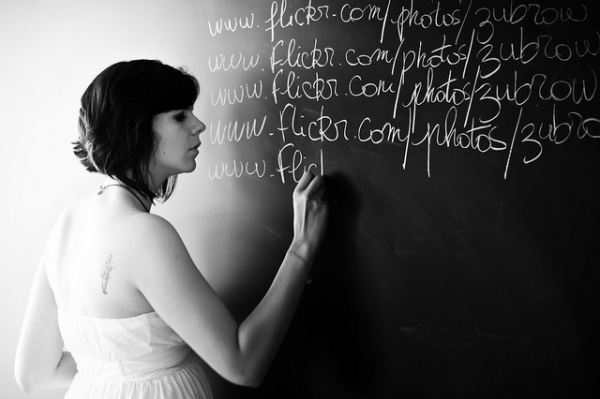 www.flickr.com/photos/zubrow
www.flickr.com/photos/zubrow
www.flickr.com/photos/zubrow
www.flickr.com/photos/zubro
www.flic